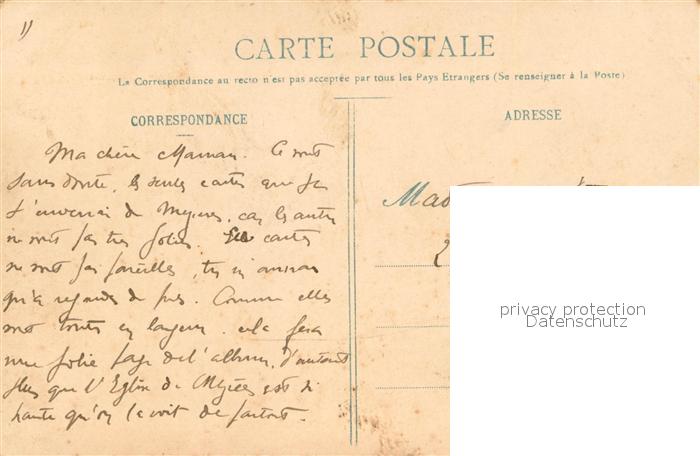 CARTE POSTALE
La Correspondance au recto n'est pas acceptée par tous les Pays Etrangers (Se renseigner à la Poste)
CORRESPONDANCE
ADRESSE
Ma chère Maman. Ce sont
sans doute, les seules cartes que je
t'enverrai de Mézières, car les autres
ne sont pas très jolies. Les cartes
ne sont pas pareilles, tu
qu'à regarder de près. Comme elles
sont toutes en largeur, cela fera
une jolie page de l'album, d'autant
plus que l'Eglise de Mézières est si
haute qu'on la voit de partout.
privacy protection
Datenschutz